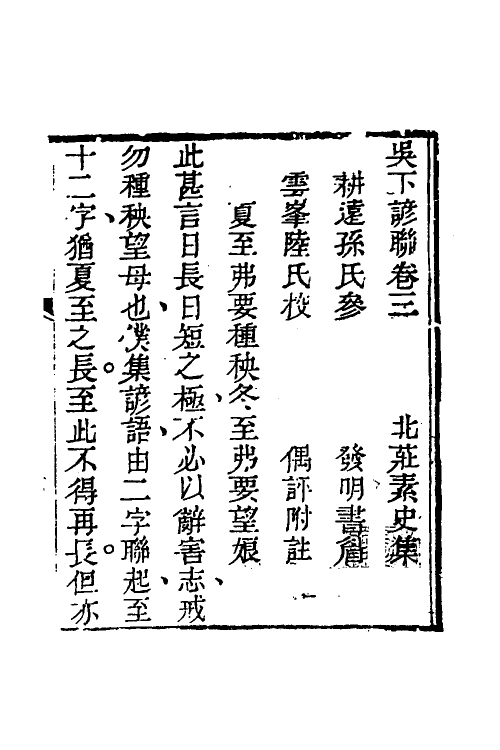 吳下諺聯卷三　北莊素史集
耕遠孫氏參　發明書
雲峯陸氏校　偶評附註
夏至弗要種秧冬至弗要望娘
此甚言日長日短之極不必以辭害志戒
勿種秧望母也僕集諺語由二字聯起至
十二字猶夏至之長至此不得再長但亦